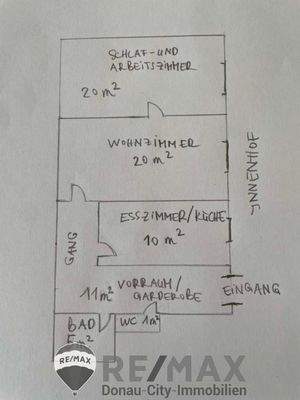 SCHLAF-UND
ARBEITSZIMMER
20 m²
WOHNZIMMER
20 m²
INNENHOF
ESSZIMMER/KÜCHE
10 m²
GANG
VORRAUM/
11m² GARDEROBE
EINGANG
BAD
5m²
WC 1m²
RE/MAX
RE/MAX
Donau-City-Immobilien